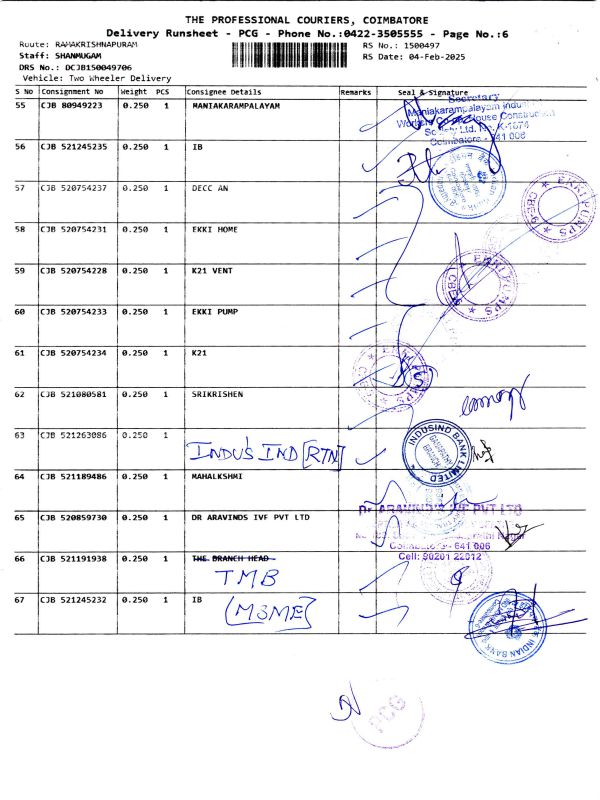 THE PROFESSIONAL COURIERS, COIMBATORE
Delivery Runsheet - PCG - Phone No.:0422-3505555 - Page No.:6
Route: RAMAKRISHNAPURAM
RS No.: 1500497
Staff: SHANMUGAM
RS Date: 04-Feb-2025
DRS No.: DCJB150049706
Vehicle: Two Wheeler Delivery
S No Consignment No Weight PCS Consignee Details Remarks Seal & Signature
55 CJB 80949223 0.250 1 MANIAKARAMPALAYAM
Secretary
Maniakarampalayam Industrial
House Construction
Society Ltd. No. K-1674
Coimbatore - 641 006
56 CJB 521245235 0.250 1 IB
57 CJB 520754237 0.250 1 DECC AN
EKKI PUMPS
CBE-9
58 CJB 520754231 0.250 1 EKKI HOME
59 CJB 520754228 0.250 1 K21 VENT
EKKI PUMPS
CBE-9
60 CJB 520754233 0.250 1 EKKI PUMP
61 CJB 520754234 0.250 1 K21
62 CJB 521080581 0.250 1 SRIKRISHEN
63 CJB 521263086 0.250 1
INDU'S IND [RTN]
INDUSIND BANK LIMITED
GANAPATHY
BRANCH
64 CJB 521189486 0.250 1 MAHALKSHMI
65 CJB 520859730 0.250 1 DR ARAVINDS IVF PVT LTD
Dr ARAVIND'S IVF PVT LTD
Nagar
Coimbatore - 641 006
Cell: 90201 22012
66 CJB 521191938 0.250 1 THE BRANCH HEAD
TMB
67 CJB 521245232 0.250 1 IB
[MSME]
INDIAN BANK
PCG